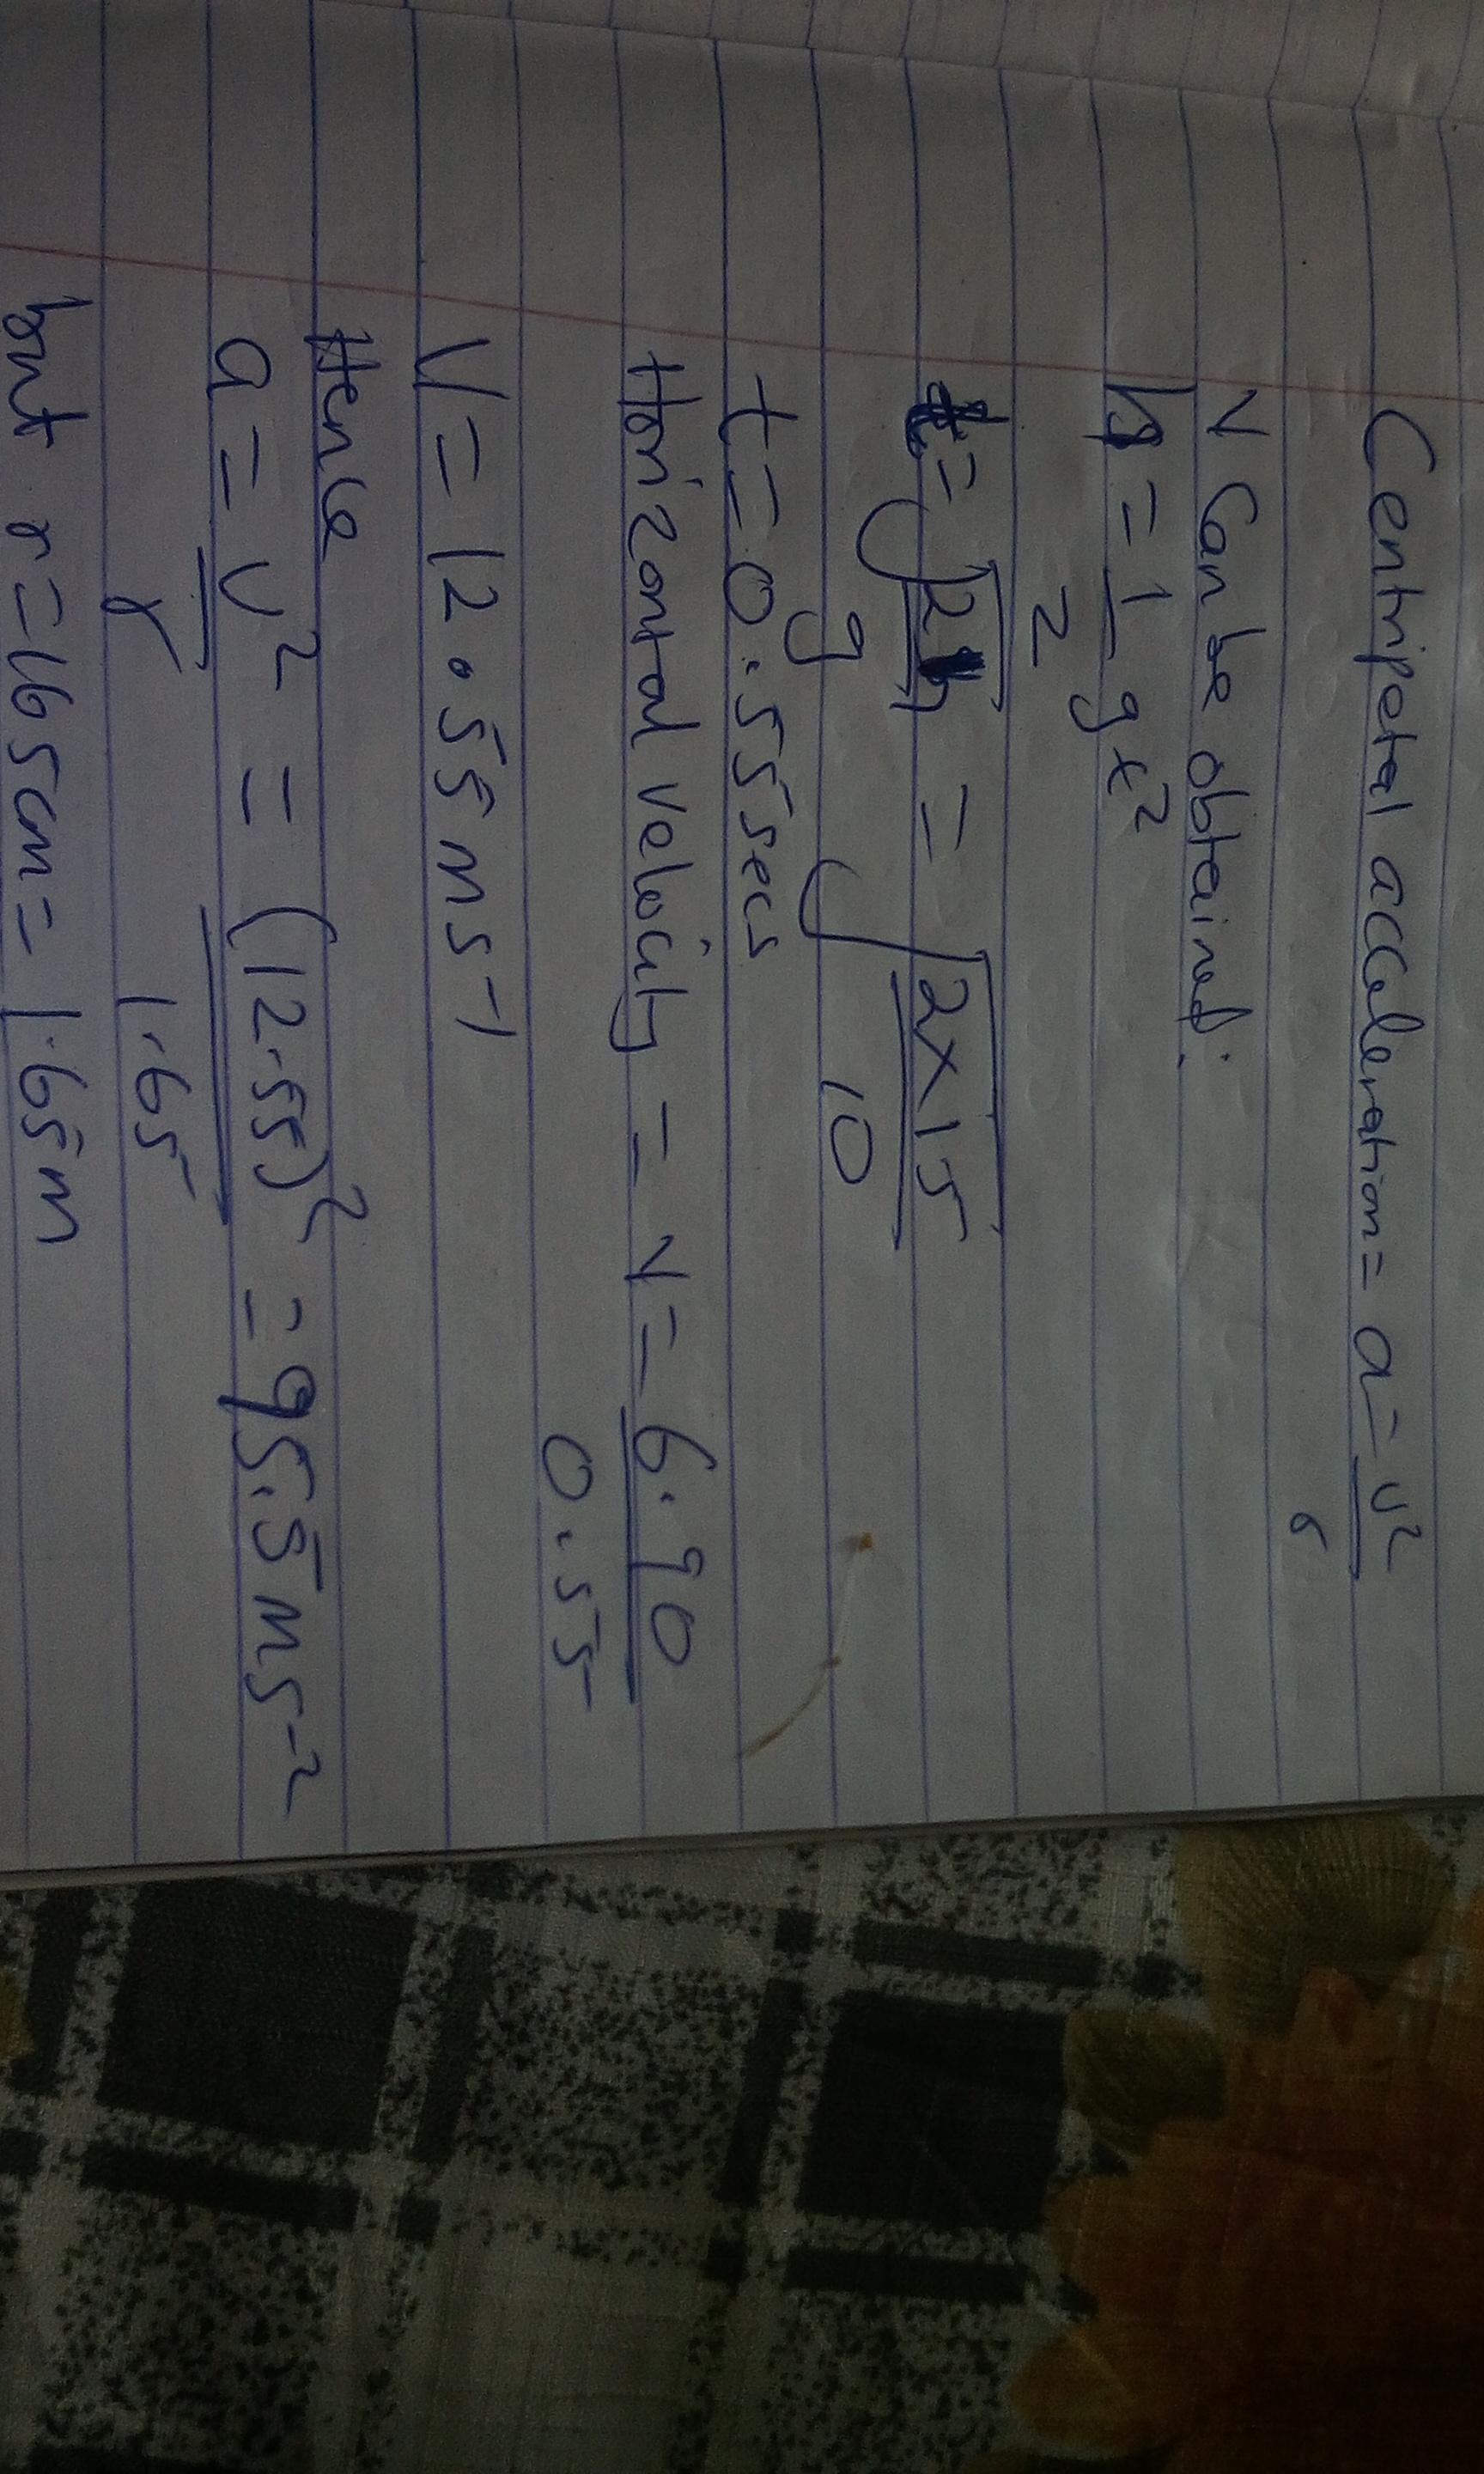 Centripetal acceleration = a = v²
r
v Can be obtained:
h = 1 gt²
2
t = √2h = √2x15
g 10
t = 0.55secs
Horizontal velocity = v = 6.90
0.55
V = 12.55ms-1
Hence
a = v² = (12.55)² = 95.5ms-2
r 1.65
but r = 165cm = 1.65m